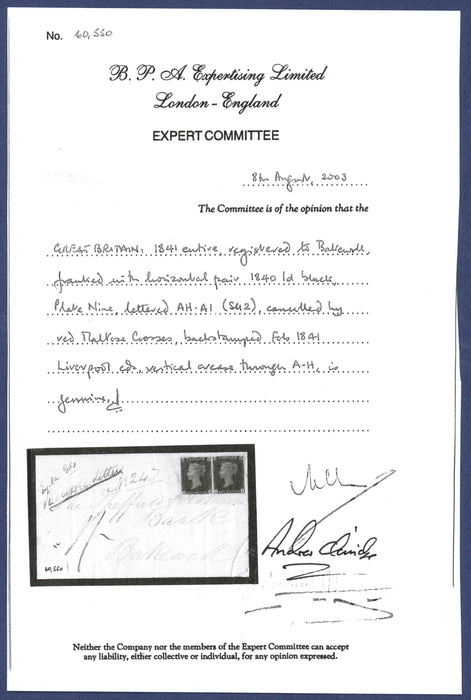 No. 60,550
B. P. A. Expertising Limited
London - England
EXPERT COMMITTEE
8th August, 2003
The Committee is of the opinion that the
GREAT BRITAIN: 1841 entire, registered to Bakewell,
franked with horizontal pair 1840 1d black,
Plate Nine, lettered AH-AI (SG2), cancelled by
red Maltese Crosses, backstamped Feb 1841
Liverpool cds, vertical crease through A-H, is
genuine.
Letter
247
The Sheffield
Bank
Bakewell
60,550
Neither the Company nor the members of the Expert Committee can accept
any liability, either collective or individual, for any opinion expressed.